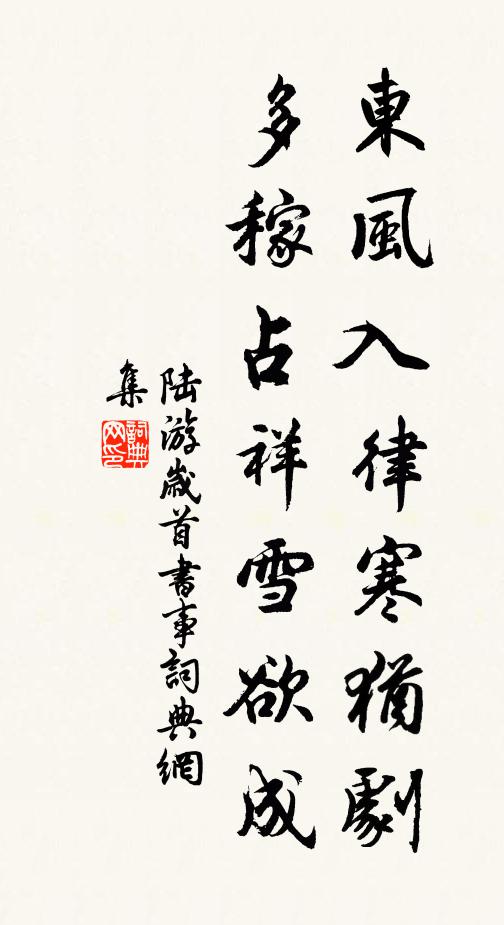 東風入律寒猶劇
多稼占祥雪欲成
陸游歲首書事詞典網
集
詞典網印